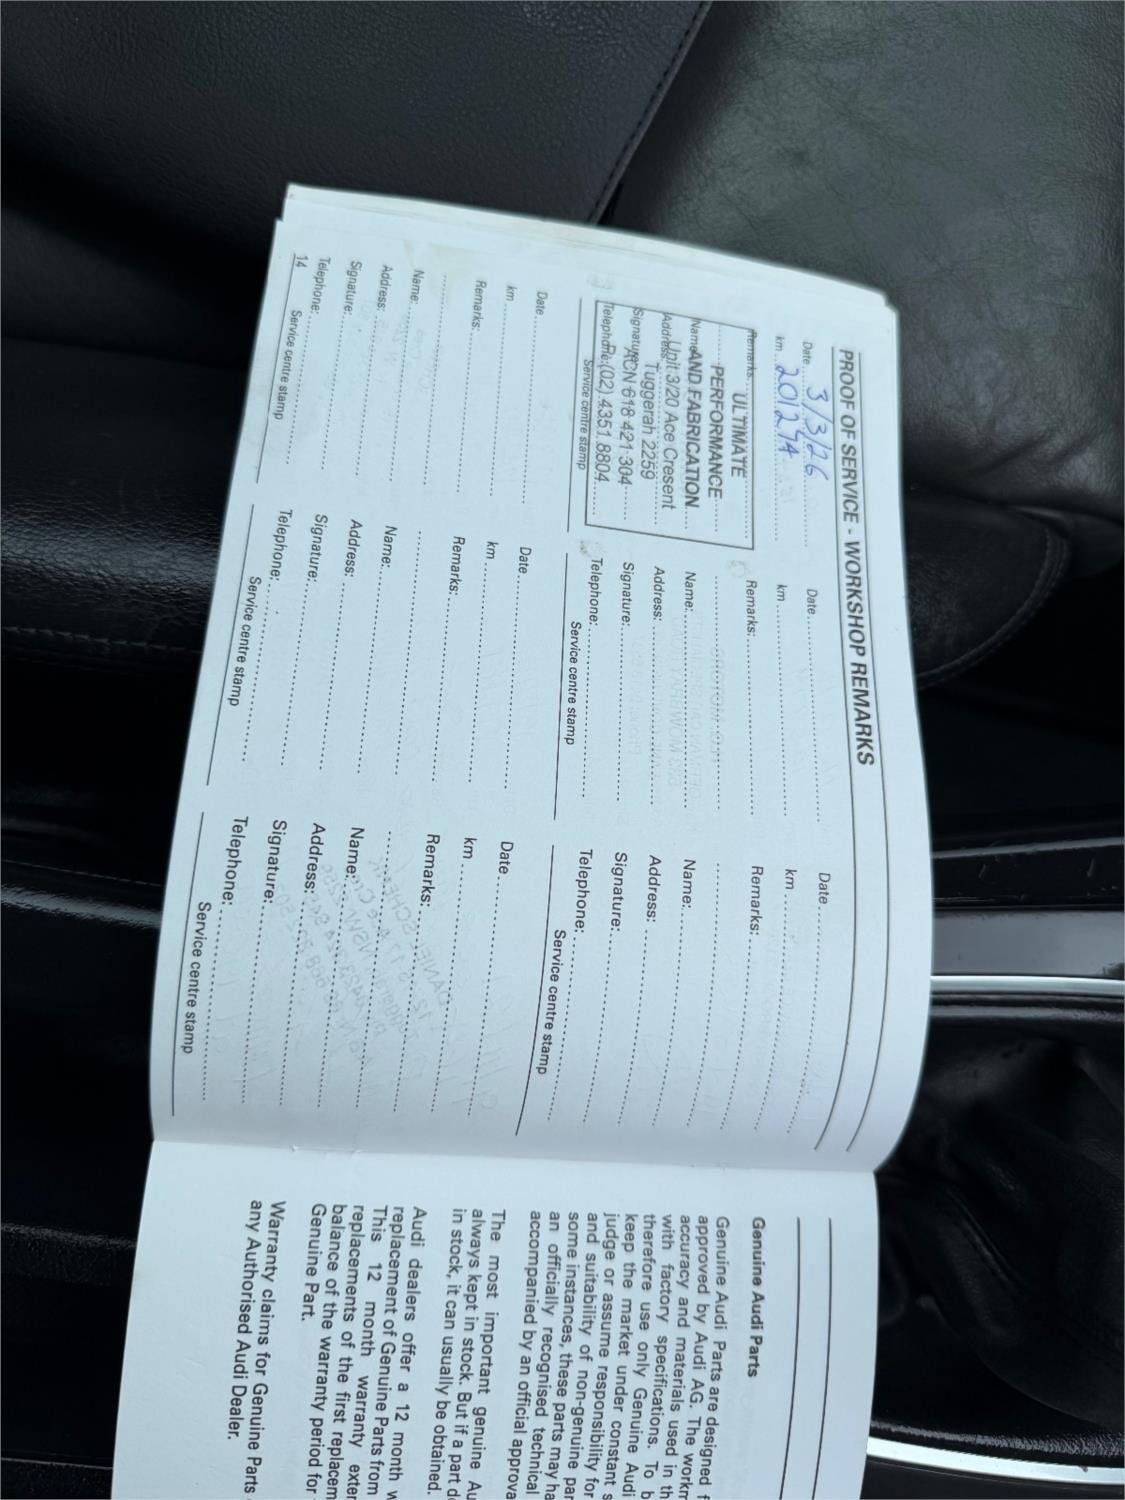 PROOF OF SERVICE - WORKSHOP REMARKS
Date 3/3/26
km 201274
Remarks:
ULTIMATE
PERFORMANCE
Name: AND FABRICATION
Address: Unit 3/20 Ace Cresent
Tuggerah 2259
Signature: ACN 618 421 304
Telephone: P:(02) 4351 8804
Service centre stamp
Date
km
Remarks:
Name:
Address:
Signature:
Telephone:
Service centre stamp
Date
km
Remarks:
Name:
Address:
Signature:
Telephone:
Service centre stamp
Date
km
Remarks:
Name:
Address:
Signature:
Telephone:
Service centre stamp
Date
km
Remarks:
Name:
Address:
Signature:
Telephone:
Service centre stamp
Date
km
Remarks:
Name:
Address:
Signature:
Telephone:
Service centre stamp
14
Genuine Audi Parts
Genuine Audi Parts are designed
approved by Audi AG. The
accuracy and materials used in
with factory specifications. To
therefore use only Genuine Audi
keep the market under constant
judge or assume responsibility for
and suitability of non-genuine
some instances, these parts may
an officially recognised technical
accompanied by an official
The most important genuine
always kept in stock. But if a part
in stock, it can usually be obtained.
Audi dealers offer a 12 month
replacement of Genuine Parts from
This 12 month warranty
replacements of the first
balance of the warranty period for
Genuine Part.
Warranty claims for Genuine Parts
any Authorised Audi Dealer.